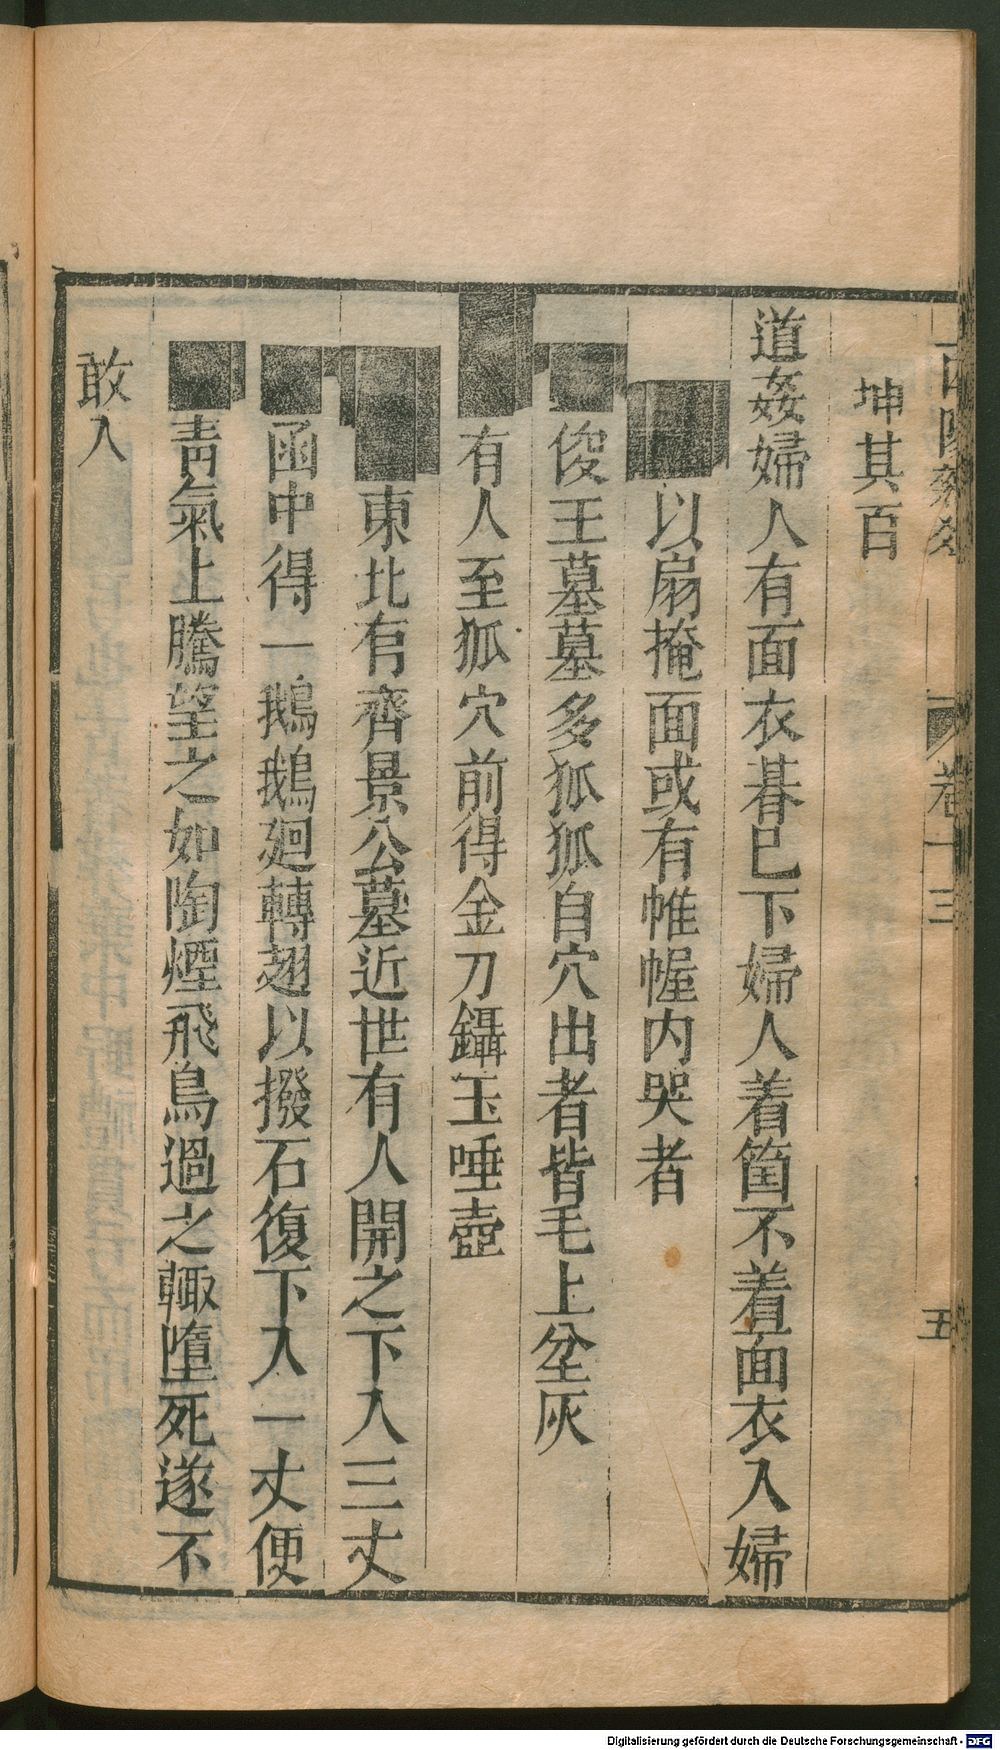 坤其百
道姦婦人有面衣朞已下婦人着箇不着面衣入婦
以扇掩面或有帷幄内哭者
俊王墓墓多狐狐自穴出者皆毛上坌灰
有人至狐穴前得金刀鑷玉唾壺
東北有齊景公墓近世有人開之下入三丈
函中得一鵝鵝廻轉翅以撥石復下入一丈便
靑氣上騰望之如陶煙飛鳥過之輙墮死遂不
敢入
卷十三
五
Digitalisierung gefördert durch die Deutsche Forschungsgemeinschaft - DFG